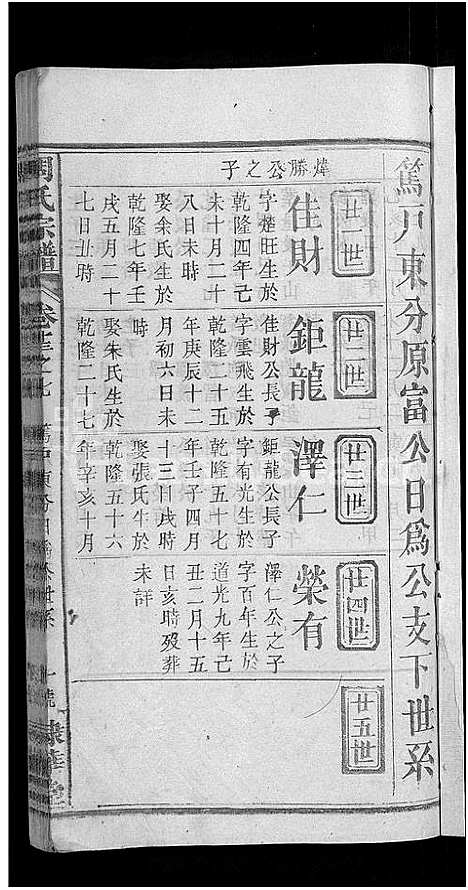 篤戶東分原富公日爲公支下世系
廿一世
煒勝公之子
佳財
字楚旺生於
乾隆四年己
未十月二十
八日未時
娶余氏生於
乾隆七年壬
戌五月二十
七日丑時
廿二世
鉅龍
佳財公長子
字雲飛生於
乾隆二十五
年庚辰十二
月初六日未
時
娶朱氏生於
乾隆二十七
廿三世
澤仁
鉅龍公長子
字有光生於
乾隆五十七
年壬子四月
十三日戌時
娶張氏生於
乾隆五十六
年辛亥十月
廿四世
榮有
澤仁公之子
字百年生於
道光九年己
丑二月十五
日亥時歿葬
未詳
廿五世
周氏宗譜
卷之七
篤戶東分日爲公世系
一號